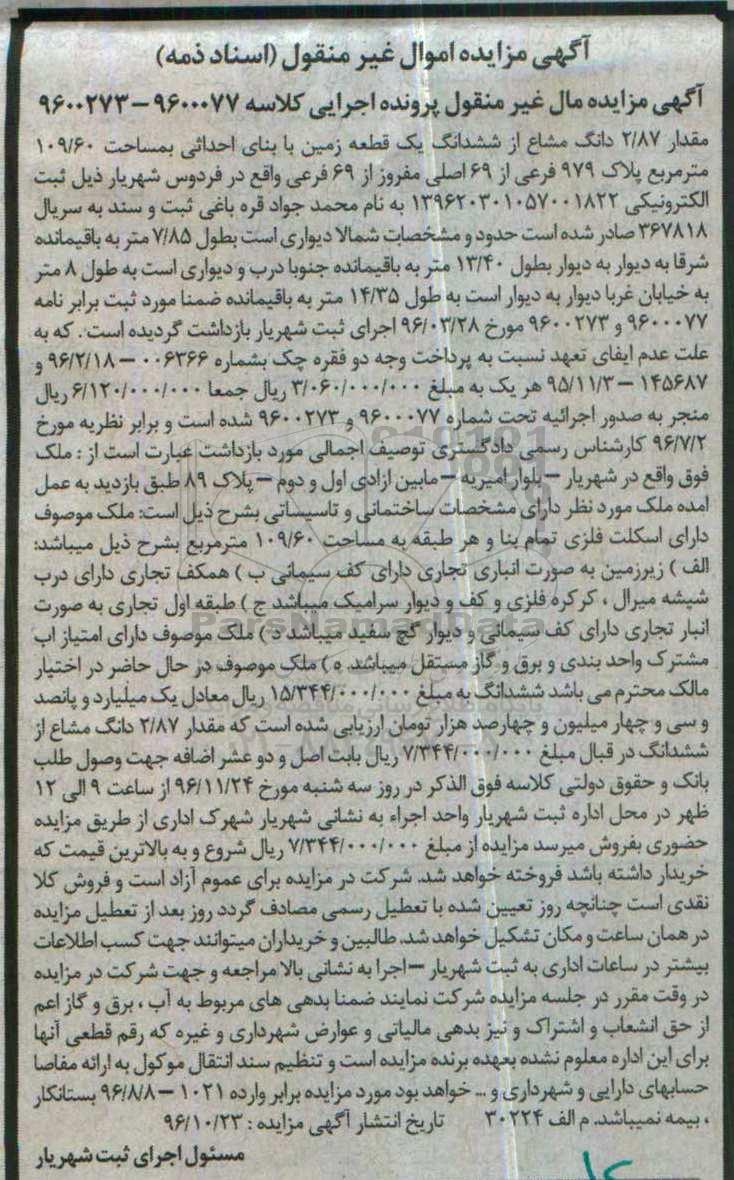 آگهی مزایده اموال غیر منقول (اسناد ذمه)
آگهی مزایده مال غیر منقول پرونده اجرایی کلاسه ۹۶۰۰۰۷۷-۹۶۰۰۲۷۳
مقدار ۲/۸۷ دانگ مشاع از ششدانگ یک قطعه زمین با بنای احداثی بمساحت ۱۰۹/۶۰
مترمربع پلاک ۹۷۹ فرعی از ۶۹ اصلی مفروز از ۶۹ فرعی واقع در فردوس شهریار ذیل ثبت
الکترونیکی ۱۳۹۶۲۰۳۰۱۰۵۷۰۰۱۸۲۲ به نام محمد جواد قره باغی ثبت و سند به سریال
۳۶۷۸۱۸ صادر شده است حدود و مشخصات شمالا دیواری است بطول ۷/۸۵ متر به باقیمانده
شرقا به دیوار به دیوار بطول ۱۳/۴۰ متر به باقیمانده جنوبا درب و دیواری است به طول ۸ متر
به خیابان غربا دیوار به دیوار است به طول ۱۴/۳۵ متر به باقیمانده ضمنا مورد ثبت برابر نامه
۹۶۰۰۰۷۷ و ۹۶۰۰۲۷۳ مورخ ۹۶/۰۳/۲۸ اجرای ثبت شهریار بازداشت گردیده است . که به
علت عدم ایفای تعهد نسبت به پرداخت وجه دو فقره چک بشماره ۰۰۶۳۶۶ – ۹۶/۲/۱۸ و
۱۴۵۶۸۷ – ۹۵/۱۱/۳ هر یک به مبلغ ۳/۰۶۰/۰۰۰/۰۰۰ ریال جمعا ۶/۱۲۰/۰۰۰/۰۰۰ ریال
منجر به صدور اجرائیه تحت شماره ۹۶۰۰۰۷۷ و ۹۶۰۰۲۷۳ شده است و برابر نظریه مورخ
۹۶/۷/۲ کارشناس رسمی دادگستری توصیف اجمالی مورد بازداشت عبارت است از : ملک
فوق واقع در شهریار – بلوار امیریه – مابین ازادی اول و دوم – پلاک ۸۹ طبق بازدید به عمل
امده ملک مورد نظر دارای مشخصات ساختمانی و تاسیساتی بشرح ذیل است: ملک موصوف
دارای اسکلت فلزی تمام بنا و هر طبقه به مساحت ۱۰۹/۶۰ مترمربع بشرح ذیل میباشد:
الف ) زیرزمین به صورت انباری تجاری دارای کف سیمانی ب ) همکف تجاری دارای درب
شیشه میرال ، کرکره فلزی و کف و دیوار سرامیک میباشد ج ) طبقه اول تجاری به صورت
انبار تجاری دارای کف سیمانی و دیوار گچ سفید میباشد د ) ملک موصوف دارای امتیاز اب
مشترک واحد بندی و برق و گاز مستقل میباشد. ه ) ملک موصوف در حال حاضر در اختیار
مالک محترم می باشد ششدانگ به مبلغ ۱۵/۳۴۴/۰۰۰/۰۰۰ ریال معادل یک میلیارد و پانصد
و سی و چهار میلیون و چهارصد هزار تومان ارزیابی شده است که مقدار ۲/۸۷ دانگ مشاع از
ششدانگ در قبال مبلغ ۷/۳۴۴/۰۰۰/۰۰۰ ریال بابت اصل و دو عشر اضافه جهت وصول طلب
بانک و حقوق دولتی کلاسه فوق الذکر در روز سه شنبه مورخ ۹۶/۱۱/۲۴ از ساعت ۹ الی ۱۲
ظهر در محل اداره ثبت شهریار واحد اجراء به نشانی شهریار شهرک اداری از طریق مزایده
حضوری بفروش میرسد مزایده از مبلغ ۷/۳۴۴/۰۰۰/۰۰۰ ریال شروع و به بالاترین قیمت که
خریدار داشته باشد فروخته خواهد شد. شرکت در مزایده برای عموم آزاد است و فروش کلا
نقدی است چنانچه روز تعیین شده با تعطیل رسمی مصادف گردد روز بعد از تعطیل مزایده
در همان ساعت و مکان تشکیل خواهد شد. طالبین و خریداران میتوانند جهت کسب اطلاعات
بیشتر در ساعات اداری به ثبت شهریار – اجرا به نشانی بالا مراجعه و جهت شرکت در مزایده
در وقت مقرر در جلسه مزایده شرکت نمایند ضمنا بدهی های مربوط به آب ، برق و گاز اعم
از حق انشعاب و اشتراک و نیز بدهی مالیاتی و عوارض شهرداری و غیره که رقم قطعی آنها
برای این اداره معلوم نشده بعهده برنده مزایده است و تنظیم سند انتقال موکول به ارائه مفاصا
حسابهای دارایی و شهرداری و ... خواهد بود مورد مزایده برابر وارده ۱۰۲۱ – ۹۶/۸/۸ بستانکار
، بیمه نمیباشد. م الف ۳۰۲۲۴ تاریخ انتشار آگهی مزایده : ۹۶/۱۰/۲۳
مسئول اجرای ثبت شهریار
ParsNamadData